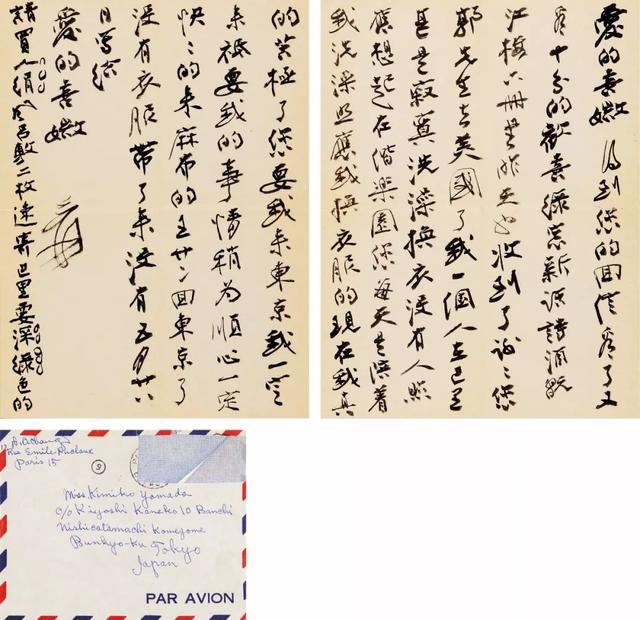 愛的喜嫩 得到您的回信看了又
看十分的歡喜綠窗新語詩酒
江梅六冊書昨天也收到了謝謝您
郭先生去英國了我一個人在巴里
甚是寂寞洗澡換衣沒有人照
應想起在偕樂園您每天是陪着
我洗澡照應我換衣服的現在我真
的苦極了您要我來東京我一定
來祇要我的事情稍為順心一定
快々的來麻布的王廿二回東京了
沒有衣服帶了來沒有五月廿八
日寫給
愛的喜嫩 爰
請買人絹 色 二枚速寄巴里要深綠色的
Rue Emile Duclaux
Paris 15
Miss. Kimiko Yamada
c/o Kiyoshi Kaneko 10 Banchi
Nishicatamachi Komagome
Bunkyo-Ku Tokyo
Japan
PAR AVION